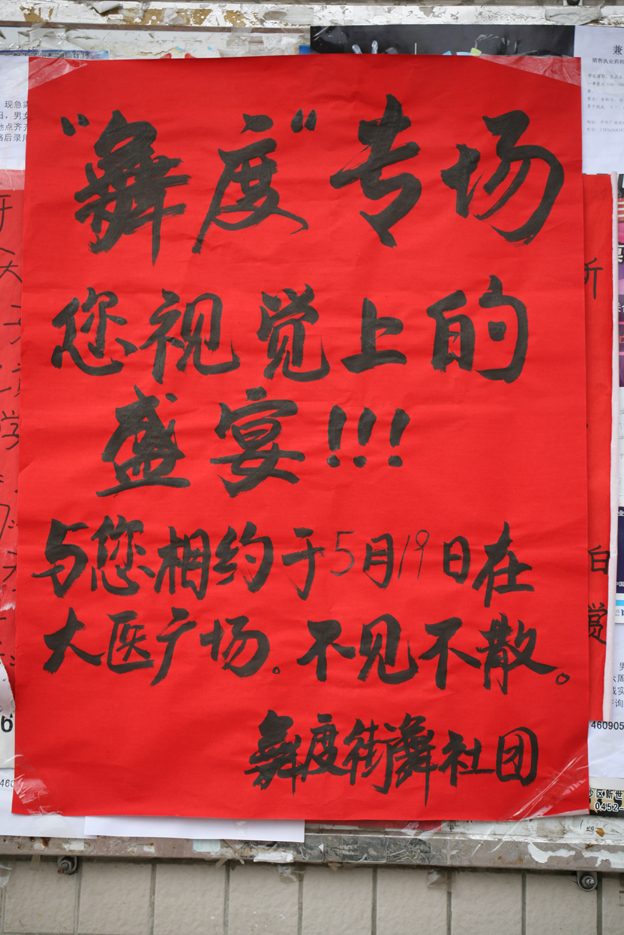 “舞度”专场
您视觉上的
盛宴!!!
与您相约于5月19日在
大医广场。不见不散。
舞度街舞社团